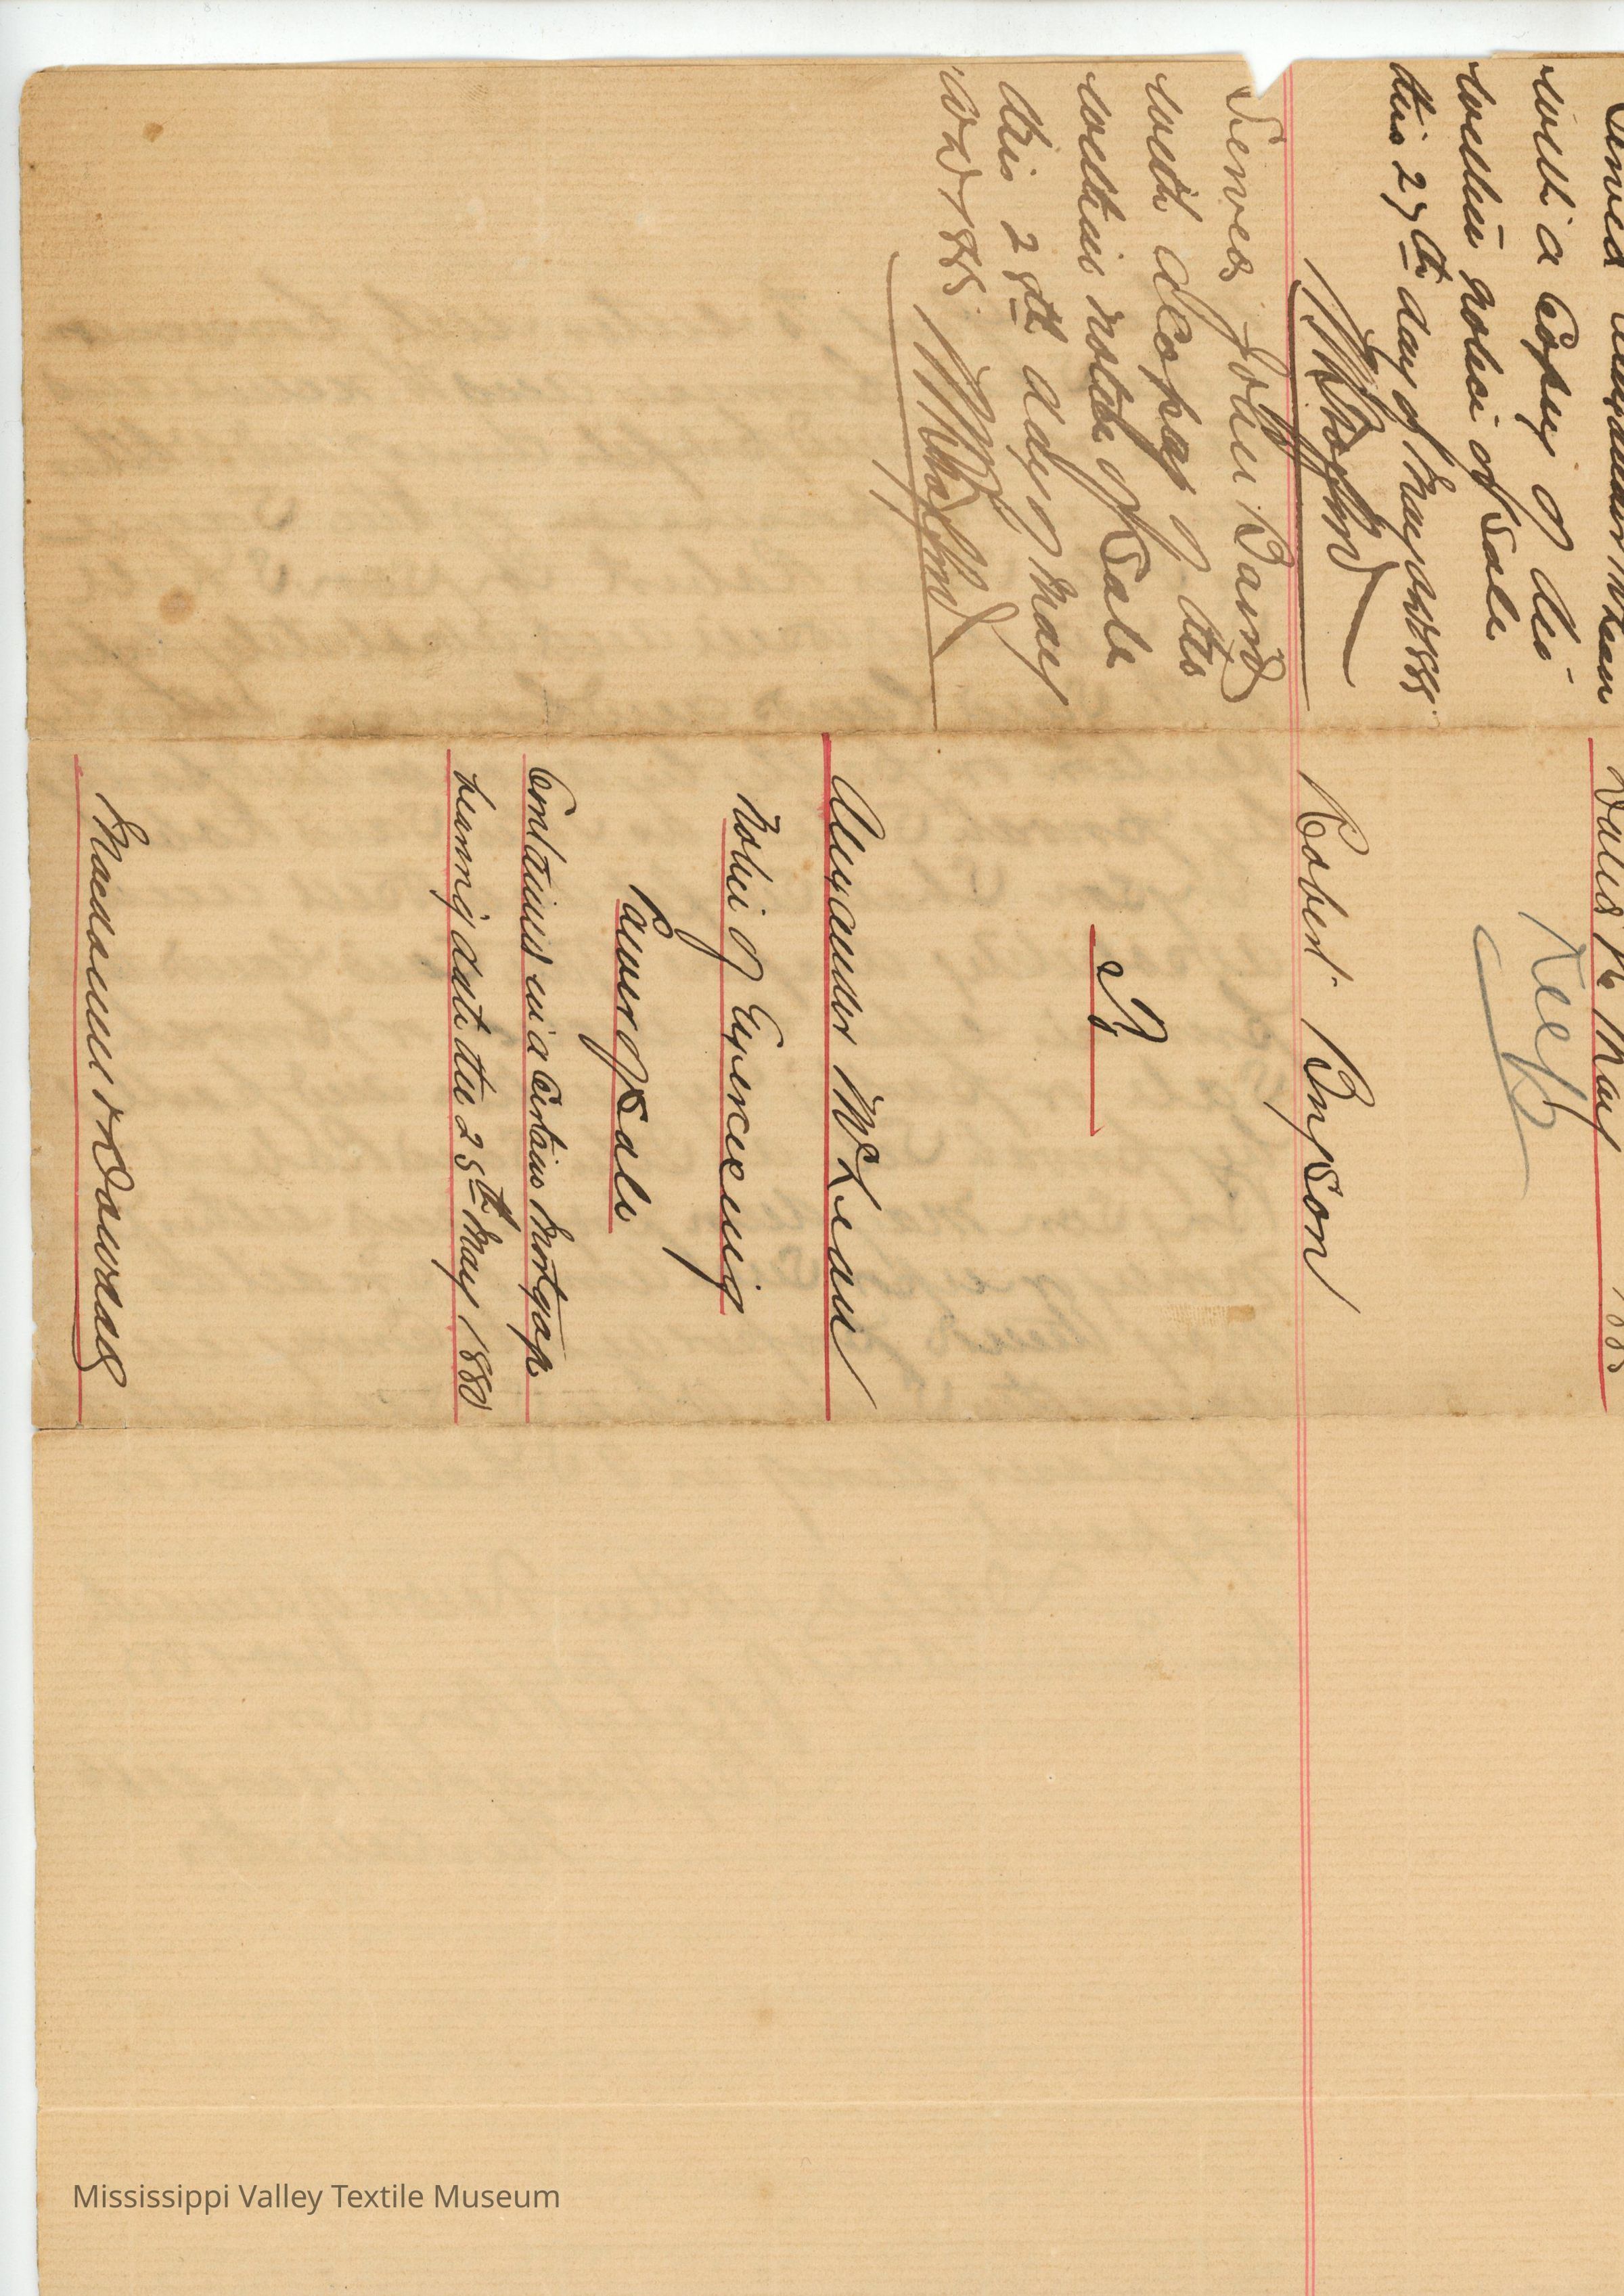 Served Alexander McLean
with a Copy of this
within notice of Sale
this 27th day of May AD 1885
Served John Band
with a Copy of this
within notice of Sale
this 28th day of May
AD 1885
Dated May 188
Kept
Robert Bryson
&
Alexander McLean
Notice of Exercising
Power of Sale
Contained in a Certain Mortgage
bearing date the 25th May 1880
Macdonell & Dowdall
Mississippi Valley Textile Museum